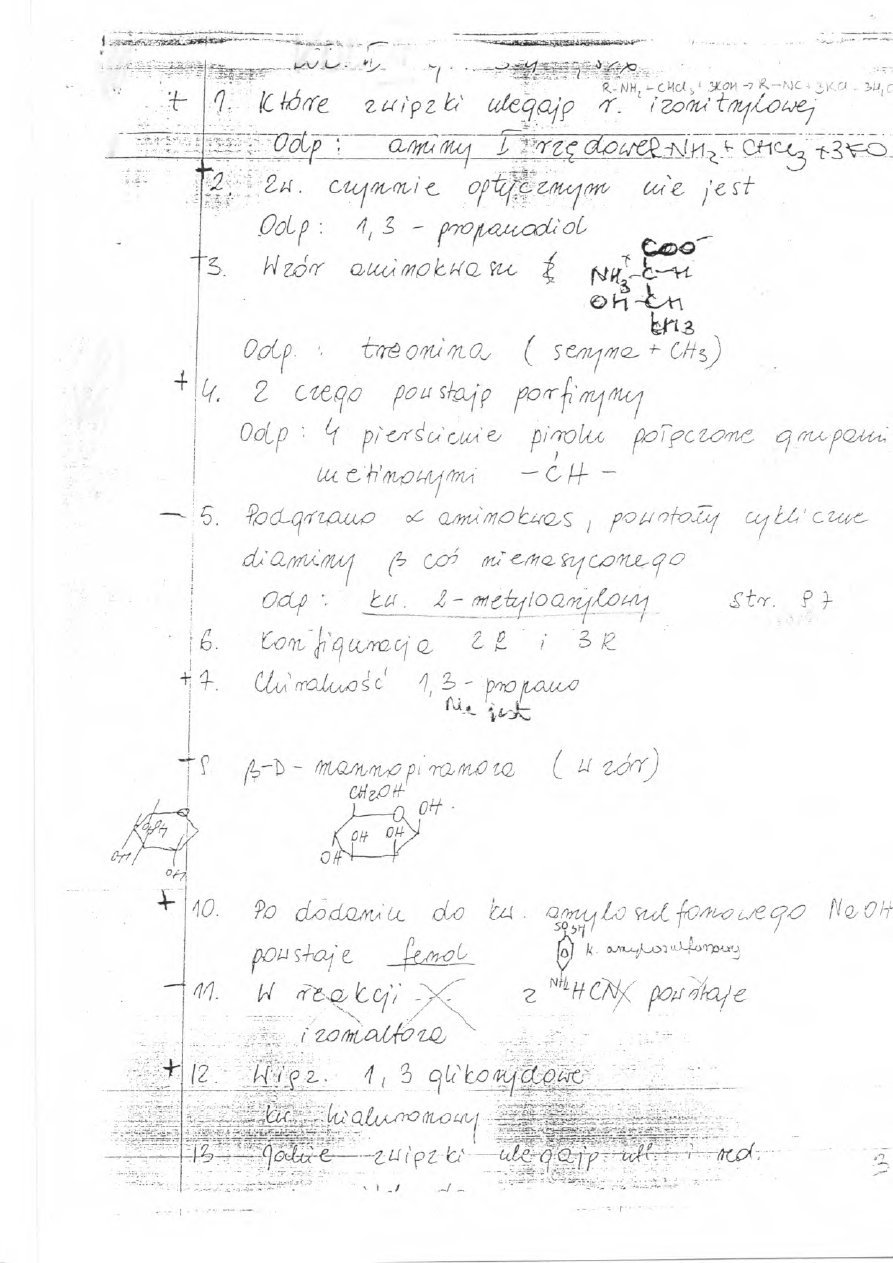 R-NH2 + CHCl3 + 3KOH → R-NC + 3KCl + 3H2O
+ 1. Które związki ulegają r. izonitrylowej
Odp: aminy I rzędowe R-NH2 + CHCl3 + 3KO
+ 2. Zw. czynnie optycznym nie jest
Odp: 1,3 - propanodiol
+ 3. Wzór aminokwasu
COO-
NH3+ - C - H
OH - CH
CH3
Odp. : treonina ( seryna + CH3)
+ 4. Z czego powstają porfiryny
Odp: 4 pierścienie pirolu połączone grupami
metinowymi - CH -
- 5. Podgrzano α aminokwas, powstały cykliczne
diaminy β coś nienasyconego
Odp: kw. 2-metyloakrylowy str. 87
6. Konfiguracja 2R i 3R
+ 7. Chiralność 1,3 - propano
Nie jest
- 9 β-D- mannopiranoza ( wzór)
CH2OH
O OH
OH OH
OH
+ 10. Po dodaniu do kw. arylosulfonowego NaOH
SO3H
powstaje fenol k. arylosulfonowy
NH2
- 11. W reakcji X z HCN powstaje
izomaltoza
+ 12. Wiąz. 1,3 glikozydowe
kw. hialuronowy
13 Jakie związki ulegają utl. i red.
3